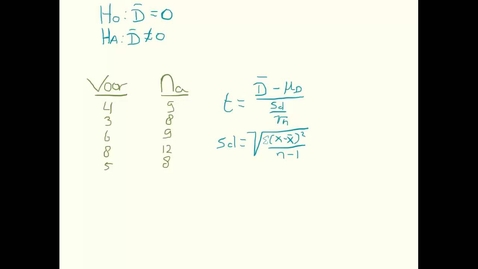 H₀: D̄ = 0
Hᴀ: D̄ ≠ 0
Voor Na
4 9
3 8
6 9
8 12
5 8
t = (D̄ - μD) / (Sd / √n)
Sd = √(Σ(x-x̄)² / (n-1))